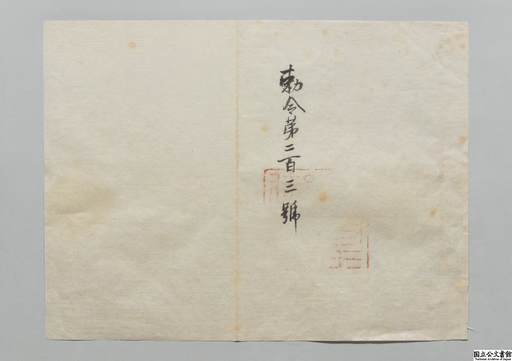 勅令第二百三號
国立公文書館
National Archives of Japan